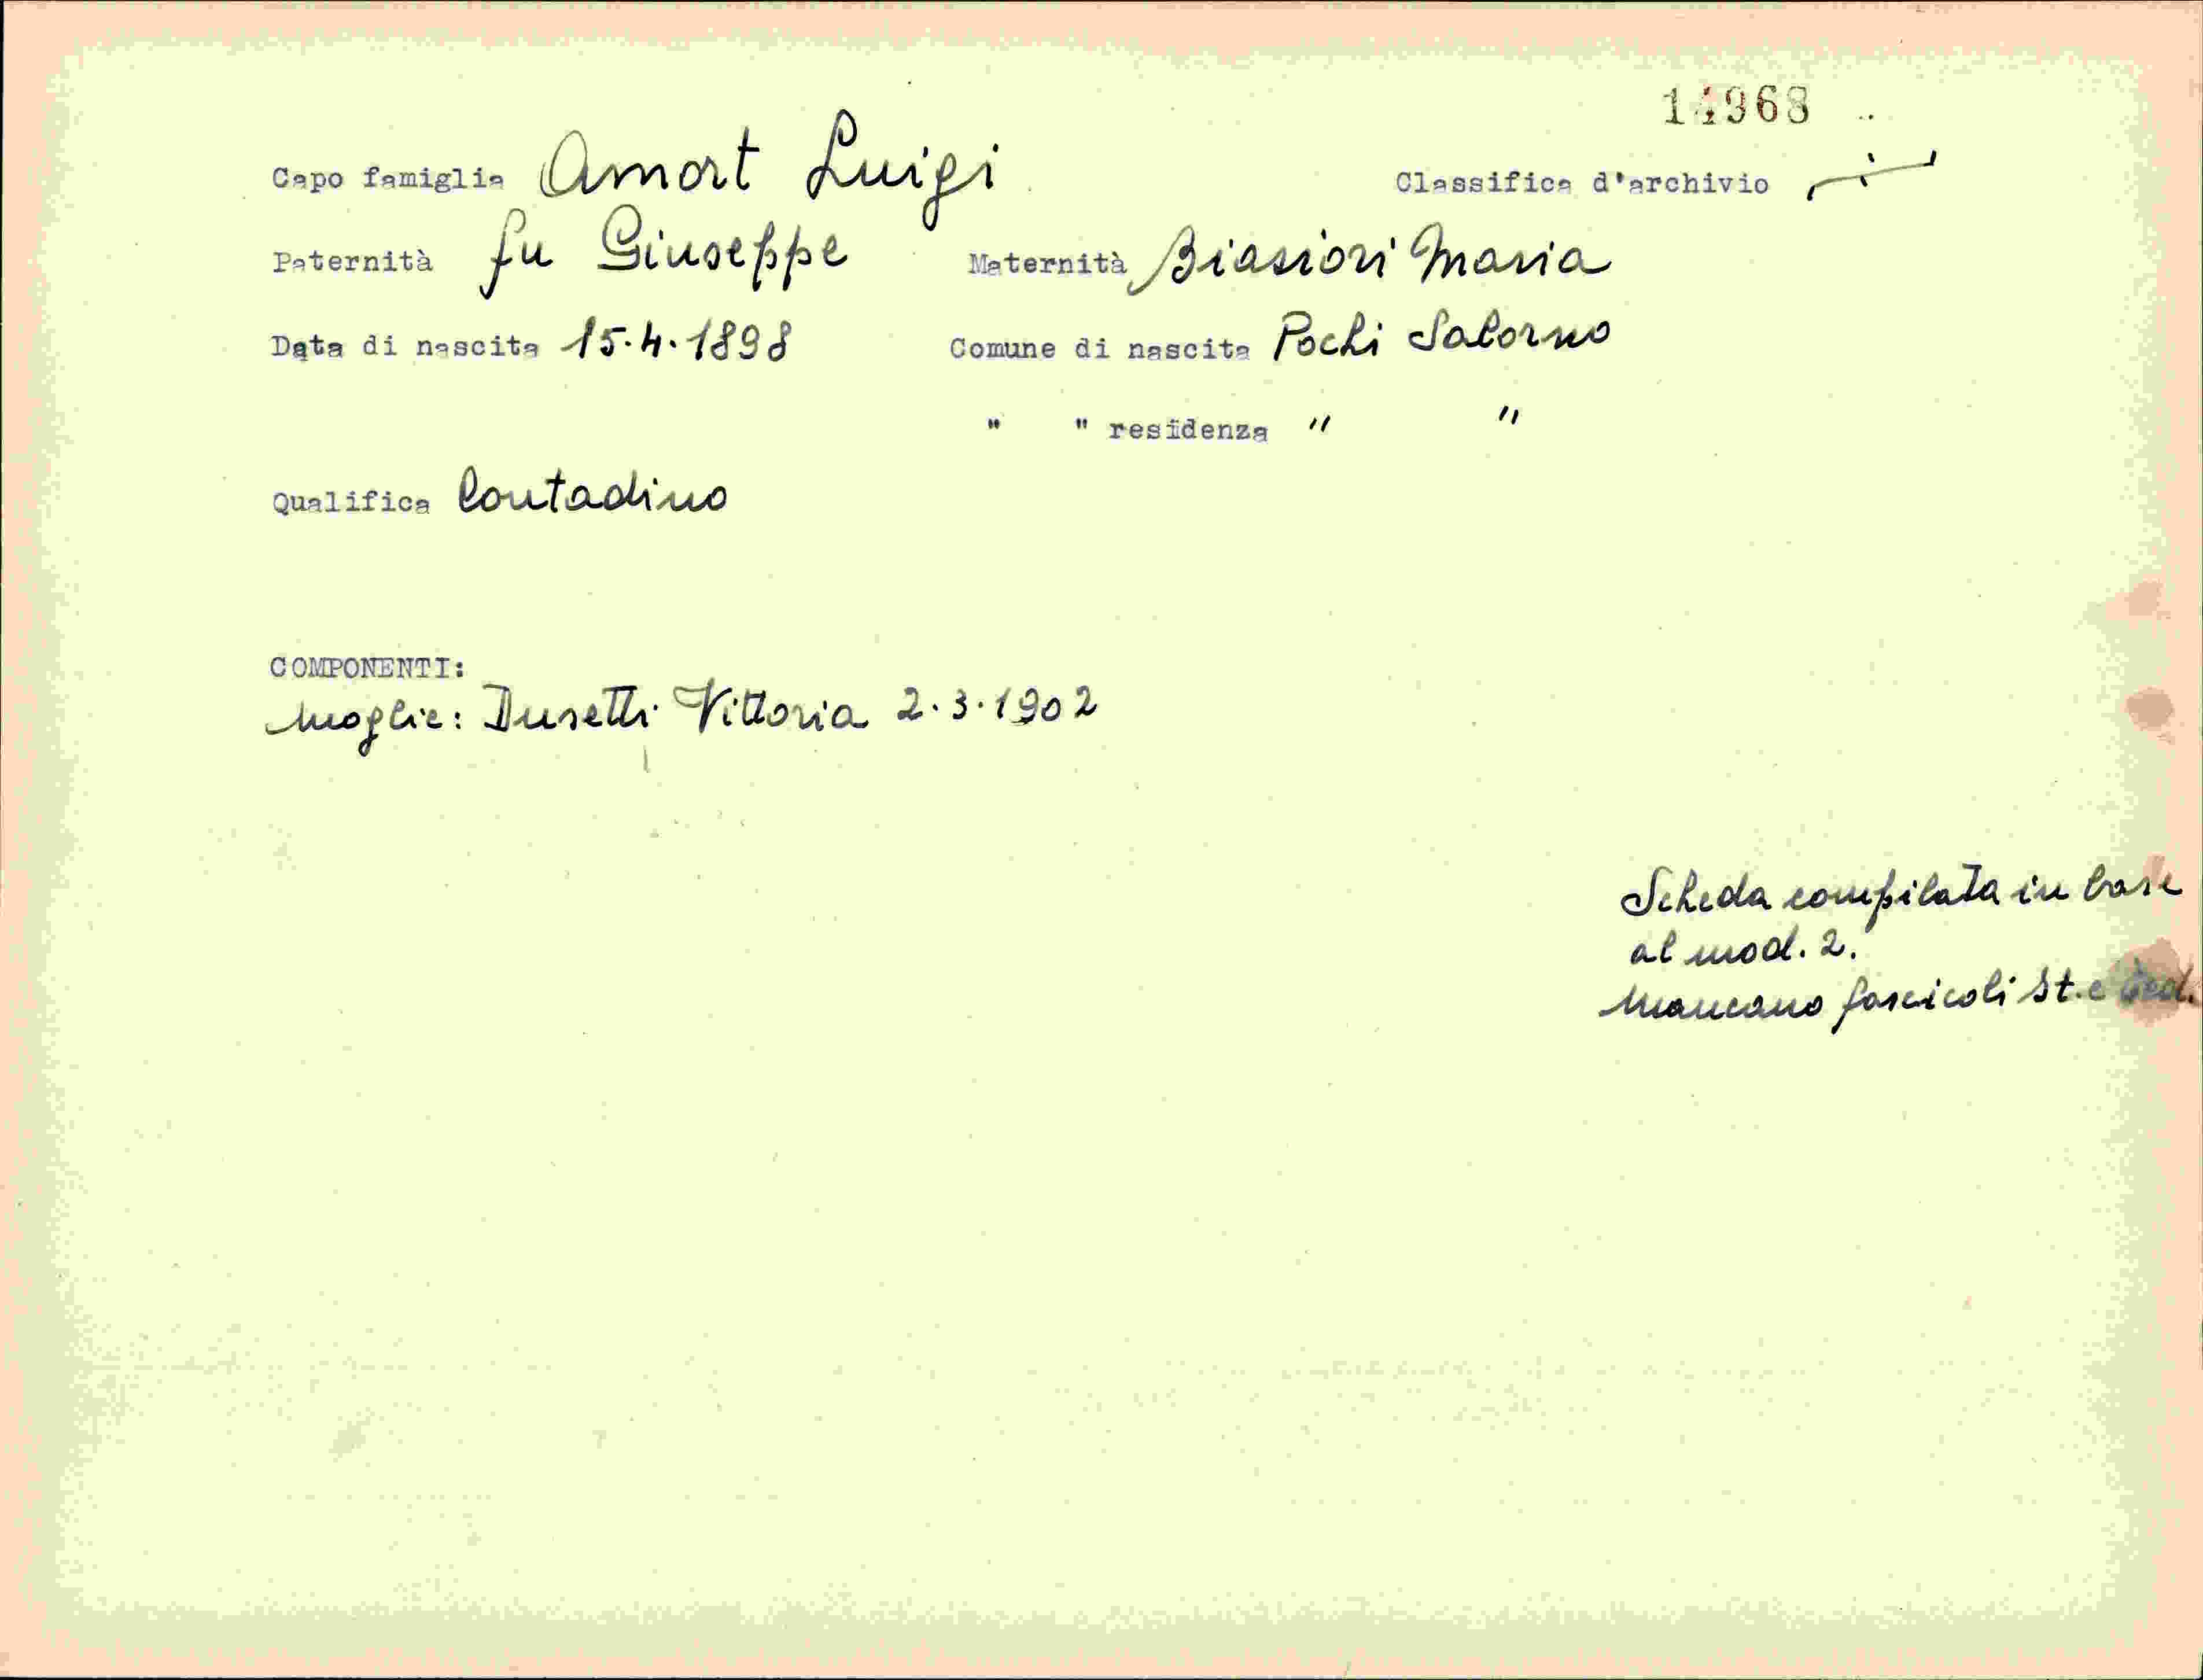 14968
Capo famiglia Amort Luigi Classifica d'archivio
Paternità fu Giuseppe Maternità Biasiori Maria
Data di nascita 15.4.1898 Comune di nascita Pochi Salorno
" " residenza " "
Qualifica Contadino
COMPONENTI:
Moglie: Dusetti Vittoria 2.3.1902
Scheda compilata in base
al mod. 2.
Mancano fascicoli St. e Ted.